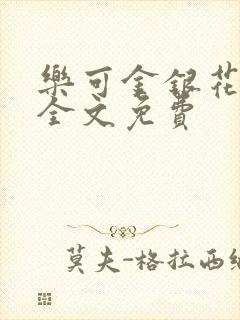 樂可金銀花
全文免費
莫夫-格拉西維